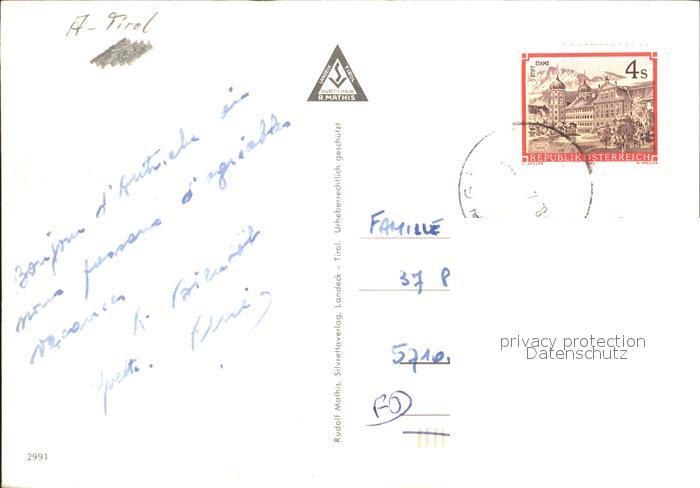 A-Tirol
Bonjour d'Autriche où
nous passons d'agréables
vacances
A Bientôt
LANDECK TIROL
SILVRETTA VERLAG
R. MATHIS
Rudolf Mathis, Silvrettaverlag, Landeck - Tirol. Urheberrechtlich geschützt
STIFT STAMS
4 S
REPUBLIK ÖSTERREICH
FAMILLE
37
privacy protection
Datenschutz
FO
2991